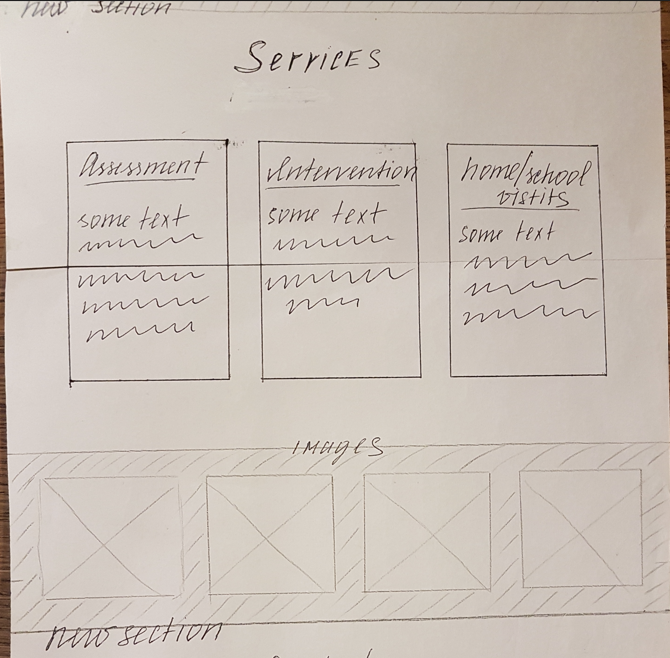 new section
Services
Assessment
some text
Intervention
some text
home/school
vistits
some text
images
new section